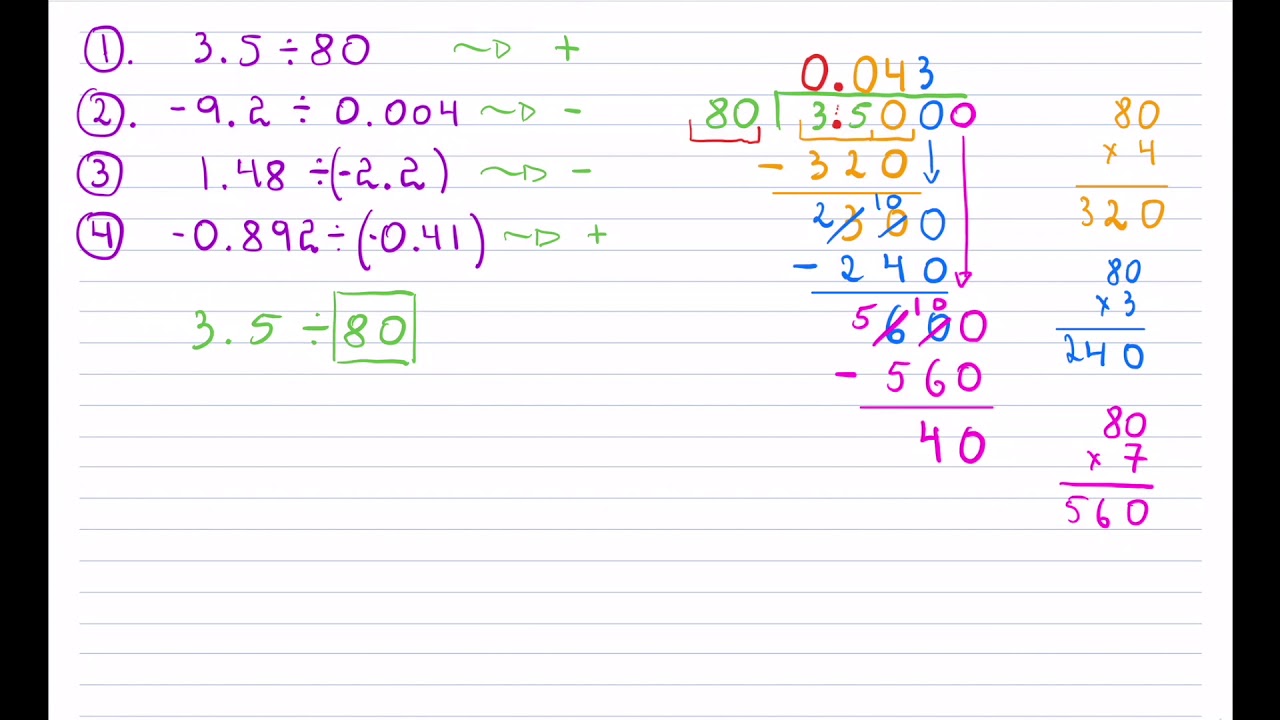 1. 3.5 ÷ 80 ~▷ +
2. -9.2 ÷ 0.004 ~▷ -
3 1.48 ÷ (-2.2) ~▷ -
4 -0.892 ÷ (-0.41) ~▷ +
3.5 ÷ 80
0.043
80 3.5000
- 320
2 30 10 0
- 240
5 60 10 0
- 560
40
80
× 4
320
80
× 3
240
80
× 7
560